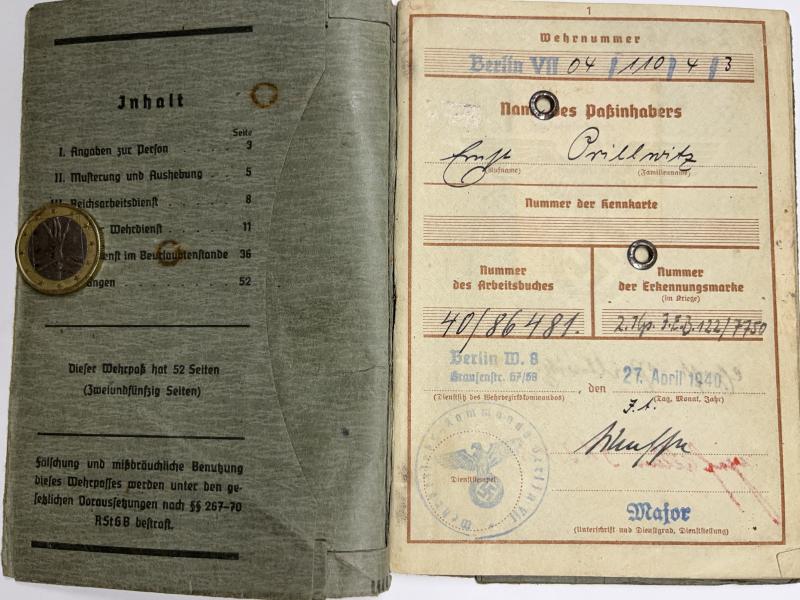 Inhalt
Seite
I. Angaben zur Person . . . . . 3
II. Musterung und Aushebung . . 5
III. Reichsarbeitsdienst . . . . . 8
Wehrdienst . . . . . 11
im Beurlaubtenstande 36
. . . . . 52
Dieser Wehrpaß hat 52 Seiten
(Zweiundfünfzig Seiten)
Fälschung und mißbräuchliche Benutzung
dieses Wehrpasses werden unter den ge-
setzlichen Voraussetzungen nach §§ 267-70
RStGB bestraft.
1
Wehrnummer
Berlin VII 04 / 110 / 4 / 3
Name des Paßinhabers
Ernst Prillwitz
(Rufname) (Familienname)
Nummer der Kennkarte
Nummer
des Arbeitsbuches
Nummer
der Erkennungsmarke
(im Kriege)
40/86481.
122/7750
Berlin W. 8
Krausenstr. 67/68
den 27. April 1940
(Dienstsitz des Wehrbezirkkommandos) (Tag, Monat, Jahr)
Dienststempel
Major
(Unterschrift und Dienstgrad, Dienststellung)